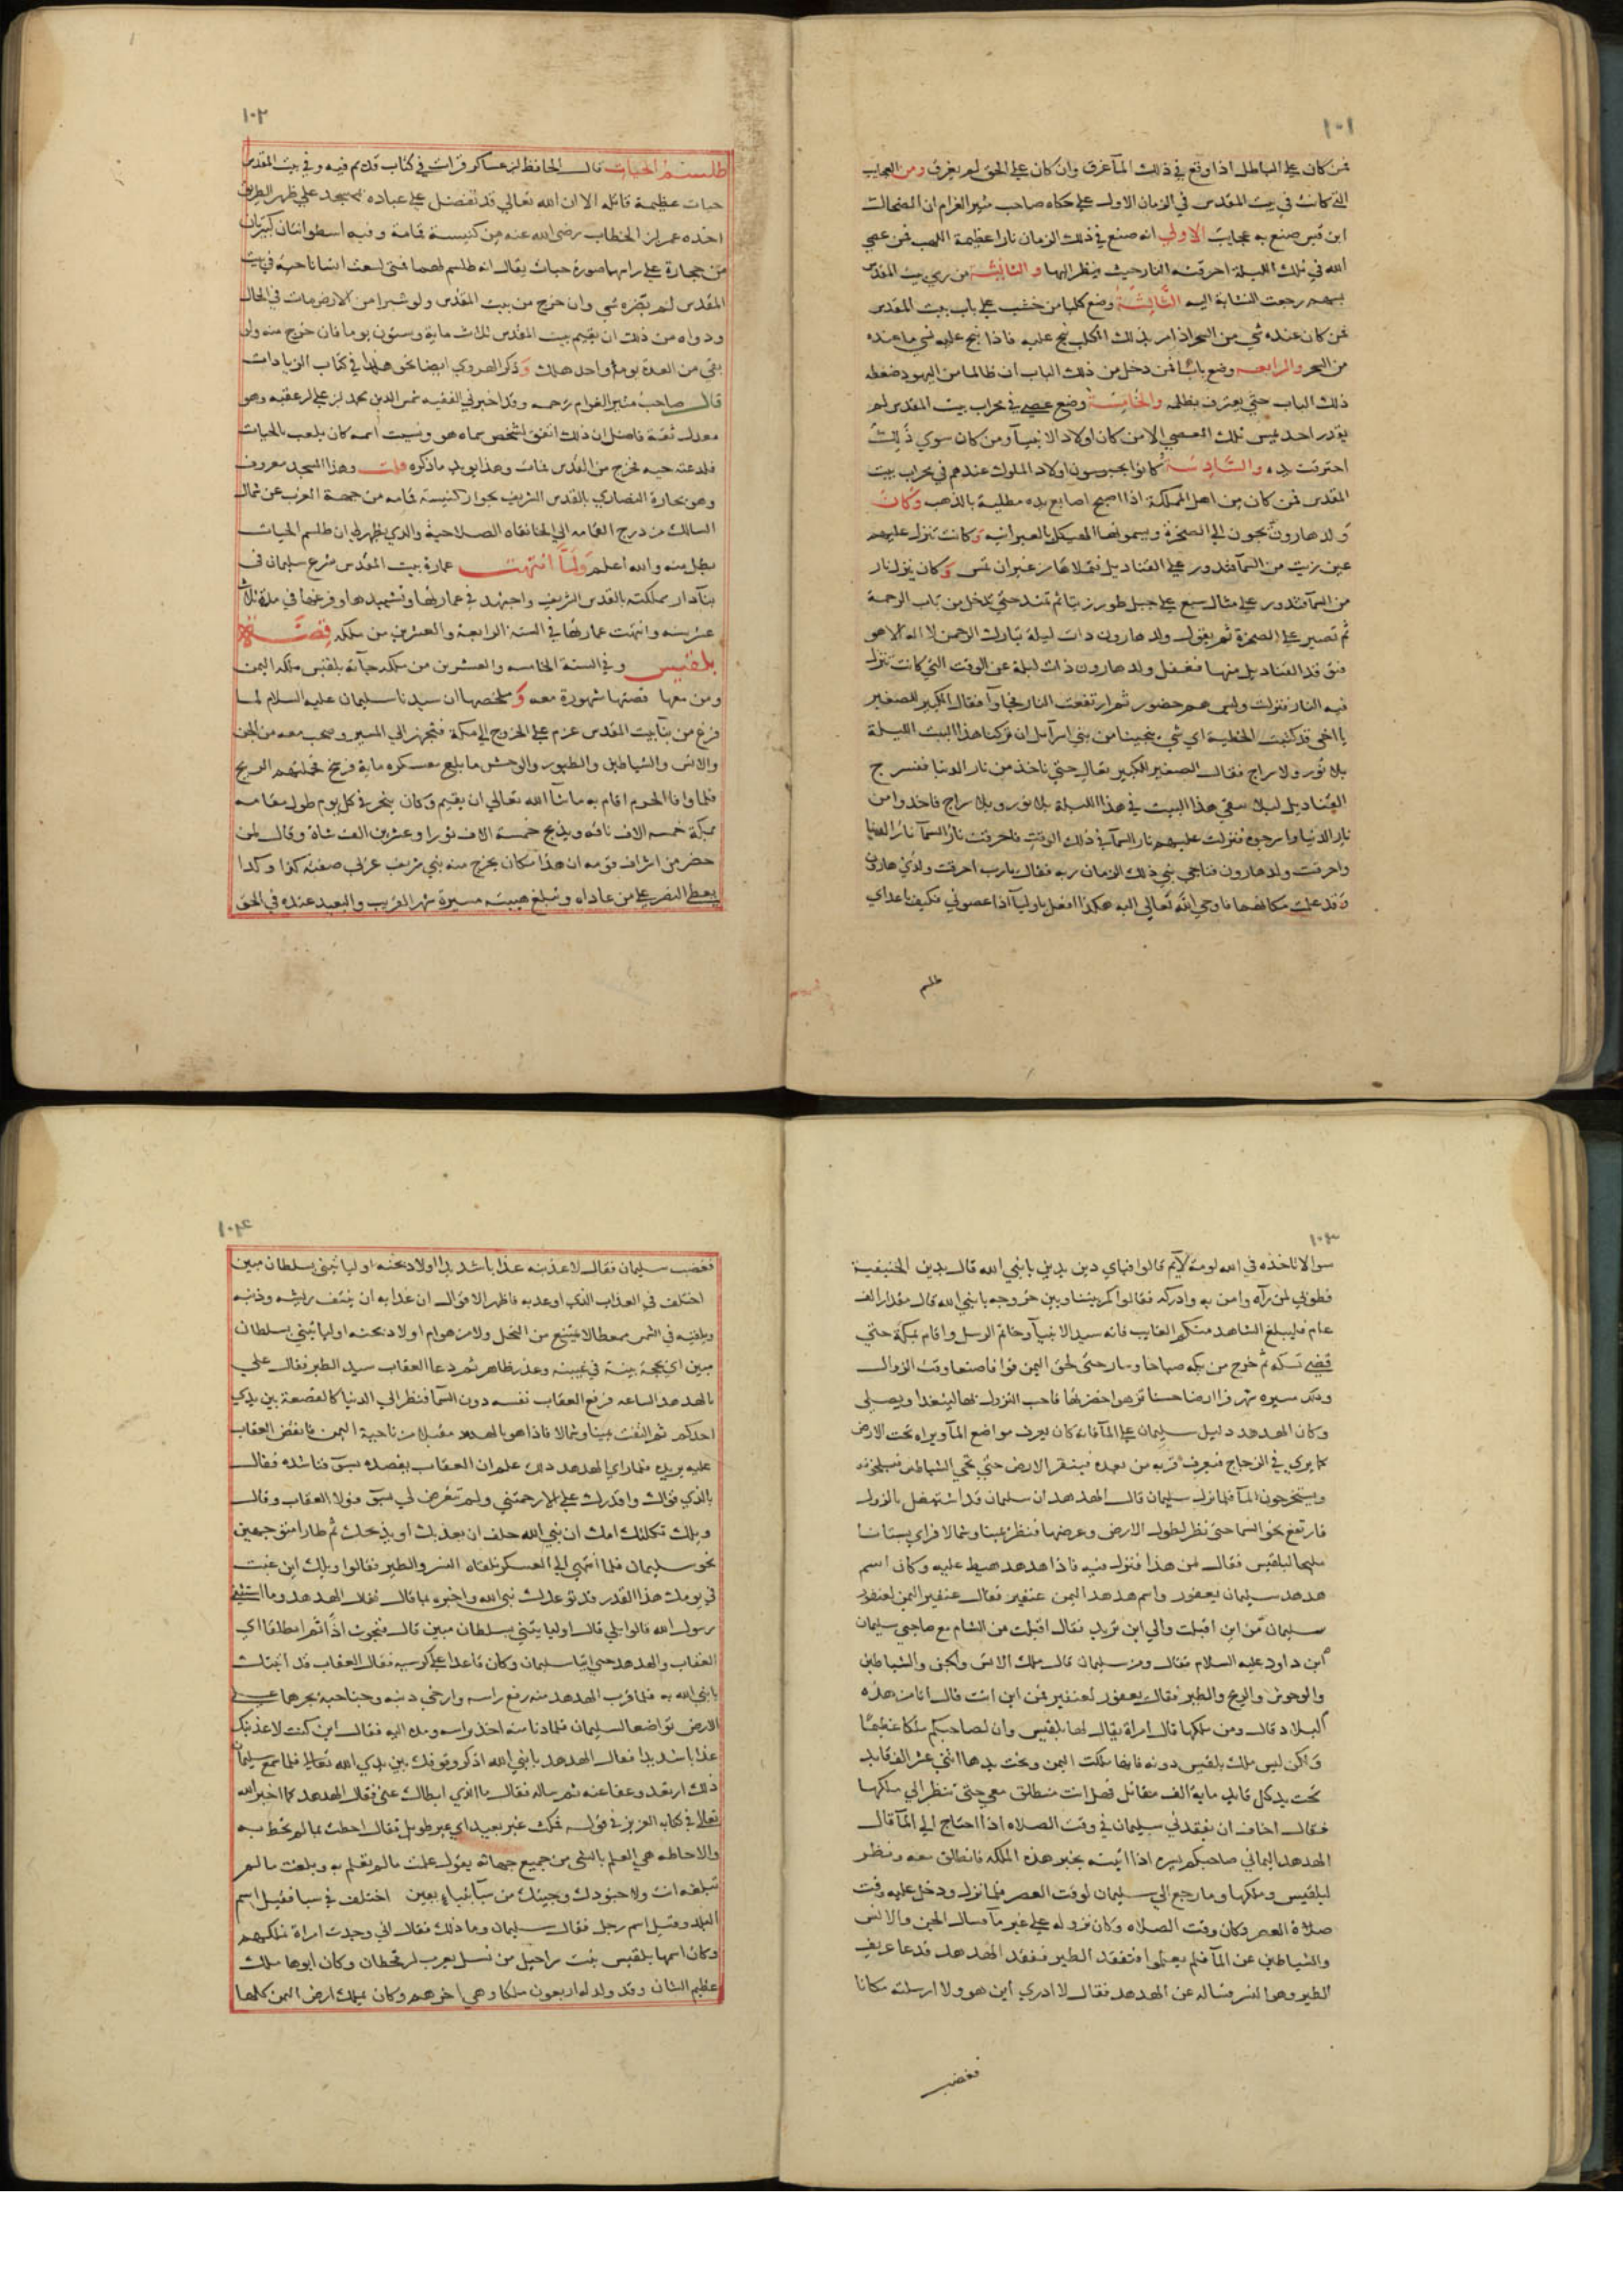 ١٠١
فمن كان على الباطل اذا وقع في ذلك المآ غرق وان كان على الحق لم يغرق ومن العجايب
التي كانت في بيت المقدس في الزمان الاول على حكاه صاحب مثير الغرام ان الضحاك
ابن قيس صنع به عجايب الاولي انه صنع في ذلك الزمان نارا عظيمة اللهب فمن عصي
الله في تلك الليلة احرقته النار حيث ينظر اليها والثانية من رمي بيت المقدس
بسهم رجعت النشابة اليه الثالثة وضع كلبا من خشب على باب بيت المقدس
فمن كان عنده شي من السحر اذا مر بذلك الكلب نبح عليه فاذا نبح عليه نسي ما عنده
من السحر والرابعه وضع بابا فمن دخل من ذلك الباب ان ظالما من اليهود ضغطه
ذلك الباب حتي يعترف بظلمه والخامسة وضع عصي في محراب بيت المقدس لم
يقدر احد يمس تلك العصي الا من كان اولاد الانبيآ ومن كان سوي ذلك
احترقت يده والسادسة كانوا يحبسون اولاد الملوك عندهم في محراب بيت
المقدس فمن كان من اهل المملكة اذا اصبح اصابع يده مطلية بالذهب وكان
ولد هارون يجون الي الصخرة ويسمونها الهيكل بالعبرانيه وكانت تنزل عليهم
عين زيت من السمآ فتدور على القناديل فتملاها من غير ان تمس وكان ينزل نار
من السمآ فتدور على مثال سبع على جبل طور زيتا ثم تمتد حتي تدخل من باب الرحمة
ثم تصير على الصخرة ثم يقول ولد هارون ذات ليلة تبارك الرحمن لا اله الا هو
فتوقد القناديل منها فغفل ولد هارون ذات ليلة عن الوقت التي كانت تنزل
فيه النار فنزلت وليس هم حضور ثم ارتفعت النار فجاوآ فقال الكبير للصغير
يا اخي قد كتبت الخطية اي شي ينجينا من بني اسرآيل ان تركنا هذا البيت الليلة
بلا نور ولا سراج فقال الصغير للكبير تعال حتي ناخذ من نار الدنيا فنسرج
القناديل ليلا يبقي هذا البيت في هذا الليلة بلا نور وبلا سراج فاخذوا من
نار الدنيا واسرجوه فنزلت عليهم نار السمآ في ذلك الوقت فاحرقت نار السمآ نار الدنيا
واحرقت ولد هارون فناجي نبي ذلك الزمان ربه فقال يارب احرقت ولدي هارون
وقد علمت مكانهما فاوحي الله تعالي اليه هكذا افعل باوليآ اذا عصوني فكيف باعداي
طلسم
١٠٢
طلسم الحيات قال الحافظ ابن عساكر قرات في كتاب قديم فيه وفي بيت المقدس
حيات عظيمة قاتله الا ان الله تعالي قد تفضل على عباده بمسجد علي ظهر الطريق
اخذه عمر ابن الخطاب رضي الله عنه من كنيسة قمامة وفيه اسطوانتان كبيرتان
من حجارة على راسهما صورة حيات يقال انه طلسم لهما فمتي لسعت انسانا حية في بيت
المقدس لم تضره شي وان خرج من بيت المقدس ولو شبرا من الارض مات في الحال
ودواه من ذلك ان يقيم ببيت المقدس ثلاث ماية وستون يوما فان خرج منه وان
بقي من العدة يوما واحد هلك وذكر الهروي ايضا نحو هذا في كتاب الزيادات
قال صاحب مثير الغرام رحمه وقد اخبرني الفقيه شمس الدين محمد ابن علي ابن عقبه وهو
معدل ثقة فاضل ان ذلك اتفق لشخص سماه هو ونسيت اسمه كان يلعب بالحيات
فلدغته حيه فخرج من القدس فمات وهذا يويد ما ذكره قلت وهذا المسجد معروف
وهو بحارة النصاري بالقدس الشريف بجوار كنيسة قمامه من جهة الغرب عن شمال
السالك من درج القمامه الي الخانقاه الصلاحية والذي يظهر لي ان طلسم الحيات
بطل منه والله اعلم ولما انتهت عمارة بيت المقدس شرع سليمان في
بنآ دار مملكته بالقدس الشريف واجتهد في عمارتها وتشييدها وفرغها في مدة ثلاث
عشر سنه وانتهت عمارتها في السنة الرابعة والعشرين من ملكه قصة
بلقيس وفي السنة الخامسه والعشرين من ملكه جآته بلقيس ملكة اليمن
ومن معها قصتها مشهورة معه وملخصها ان سيدنا سليمان عليه السلام لما
فرغ من بنآ بيت المقدس عزم على الخروج الي مكة فتجهز الي المسير وصحب معه من الجن
والانس والشياطين والطيور والوحش ما بلغ معسكره ماية فرسخ فحملتهم الريح
فلما وافا الحرم اقام به ماشآ الله تعالي ان يقيم وكان ينحر في كل يوم طول مقامه
بمكة خمسه الاف ناقه ويذبح خمسة الاف ثورا وعشرين الف شاة وقال لمن
حضر من اشراف قومه ان هذا مكان يخرج منه نبي شريف عربي صفته كذا وكذا
يعطي النصر على من عاداه وتبلغ هيبته مسيرة شهر القريب والبعيد عنده في الحق
١٠٣
سوا لا تاخذه في الله لومة لآيم قالوا فباي دين يدين يا نبي الله قال بدين الحنيفية
فطوبي لمن رآه وامن به وادركه فقالوا كم بيننا وبين خروجه يا نبي الله قال مقدار الف
عام فليبلغ الشاهد منكم الغايب فانه سيد الانبيآ وخاتم الرسل واقام بمكة حتي
قضي نسكه ثم خرج من مكه صباحا وسار حتي لحق اليمن فوافا صنعا وقت الزوال
وذلك مسيره شهر فرا ارضا حسنا تزهوا خضرتها فاحب النزول بها ليتغدا ويصلي
وكان الهدهد دليل سليمان على المآ فانه كان يعرف مواضع المآ ويراه تحت الارض
كما يري في الزجاج فيعرف قربه من بعده فينقر الارض حتي تجي الشياطين فيسلخونه
ويستخرجون المآ فلما نزل سليمان قال الهدهد ان سليمان قد اشتغل بالنزول
فارتفع نحو السما حتي نظر لطول الارض وعرضها فنظر يمينا وشمالا فراي بستانا
لبلقيس فقال لمن هذا فنزل فيه فاذا هدهد هبط عليه وكان اسم
هدهد سليمان يعفور واسم هدهد اليمن عنفير فقال عنفير اليمن ليعفور
سليمان من اين اقبلت والي اين تريد فقال اقبلت من الشام مع صاحبي سليمان
ابن داود عليه السلام فقال ومن سليمان قال ملك الانس والجن والشياطين
والوحوش والريح والطير فقال يعفور لعنفير فمن اين انت قال انا من هذه
البلاد قال ومن ملكها قال امراة يقال لها بلقيس وان لصاحبكم ملكا عظيما
ولكن ليس ملك بلقيس دونه فانها ملكت اليمن وتحت يدها اثني عشر الف قايد
تحت يد كل قايد ماية الف مقاتل فهل انت منطلق معي حتي تنظر الي ملكها
فقال اخاف ان يفقدني سليمان في وقت الصلاه اذا احتاج الي المآ قال
الهدهد اليماني صاحبكم يسره اذا اتيته بخبر هذه الملكة فانطلق معه ونظر
لبلقيس وملكها وما رجع الي سليمان لوقت العصر فلما نزل ودخل عليه وقت
صلاة العصر وكان وقت الصلاه وكان نزوله على غير مآ فسال الجن والانس
والشياطين عن المآ فلم يعلموا فتفقد الطير ففقد الهدهد فدعا عريف
الطير وهو النسر فساله عن الهدهد فقال لا ادري اين هو ولا ارسلته مكانا
فغضب
١٠٤
فغضب سليمان فقال لاعذبنه عذابا شديدا اولاذبحنه او لياتيني بسلطان مبين
اختلف في العذاب الذي اوعد به فاظهر الاقوال ان عذابه ان ينتف ريشه وذنبه
ويلقيه في الشمس ممعطا لا يمتنع من النحل ولا من هوام اولاذبحنه اولياتيني بسلطان
مبين اي بحجة بينة في غيبته وعذر ظاهر ثم دعا العقاب سيد الطير فقال علي
بالهدهد الساعه فرفع العقاب نفسه دون السمآ فنظر الي الدنيا كالقصعة بين يدي
احدكم ثم التفت يمينا وشمالا فاذا هو بالهدهد مقبلا من ناحية اليمن فانقض العقاب
عليه يريده فلما راي الهدهد ذلك علم ان العقاب يقصده بسوء فناشده فقال
بالذي قواك واقدرك علي الا رحمتني ولم تتعرض لي بسوء فولا العقاب وقال
ويلك ثكلتك امك ان نبي الله حلف ان يعذبك او يذبحك ثم طارا متوجهين
نحو سليمان فلما انتهي الي العسكر تلقاه النسر والطير فقالوا ويلك اين غبت
في يومك هذا القدر قد توعدك نبي الله واخبروه بما قال فقال الهدهد وما استثني
رسول الله قالوا بلي قال اولياتيني بسلطان مبين قال فنجوت اذا ثم انطلقا اي
العقاب والهدهد حتي اتيا سليمان وكان قاعدا على كرسيه فقال العقاب قد اتيتك
يا نبي الله به فلما قرب الهدهد منه رفع راسه وارخي ذنبه وجناحيه يجرها على
الارض تواضعا لسليمان فلما دنا منه اخذ براسه ومده اليه فقال اين كنت لاعذبنك
عذابا شديدا فقال الهدهد يا نبي الله اذكر وقوفك بين يدي الله تعالى فلما سمع سليمان
ذلك ارتعد وعفا عنه ثم ساله فقال ما الذي ابطاك عني فقال الهدهد كما اخبر الله
تعالى في كتابه العزيز في قوله فمكث غير بعيد اي غير طويل فقال احطت بما لم تحط به
والاحاطه هي العلم بالشي من جميع جهاته يقول علمت ما لم تعلم به وبلغت ما لم
تبلغه انت ولا جنودك وجيتك من سبآ بنباء يقين اختلف في سبا فقيل اسم
البلد وقيل اسم رجل فقال سليمان وما ذلك فقال اني وجدت امراة تملكهم
وكان اسمها بلقيس بنت سراحيل من نسل يعرب ابن قحطان وكان ابوها ملك
عظيم الشان وقد ولد له اربعون ملكا وهي اخرهم وكان يملك ارض اليمن كلها